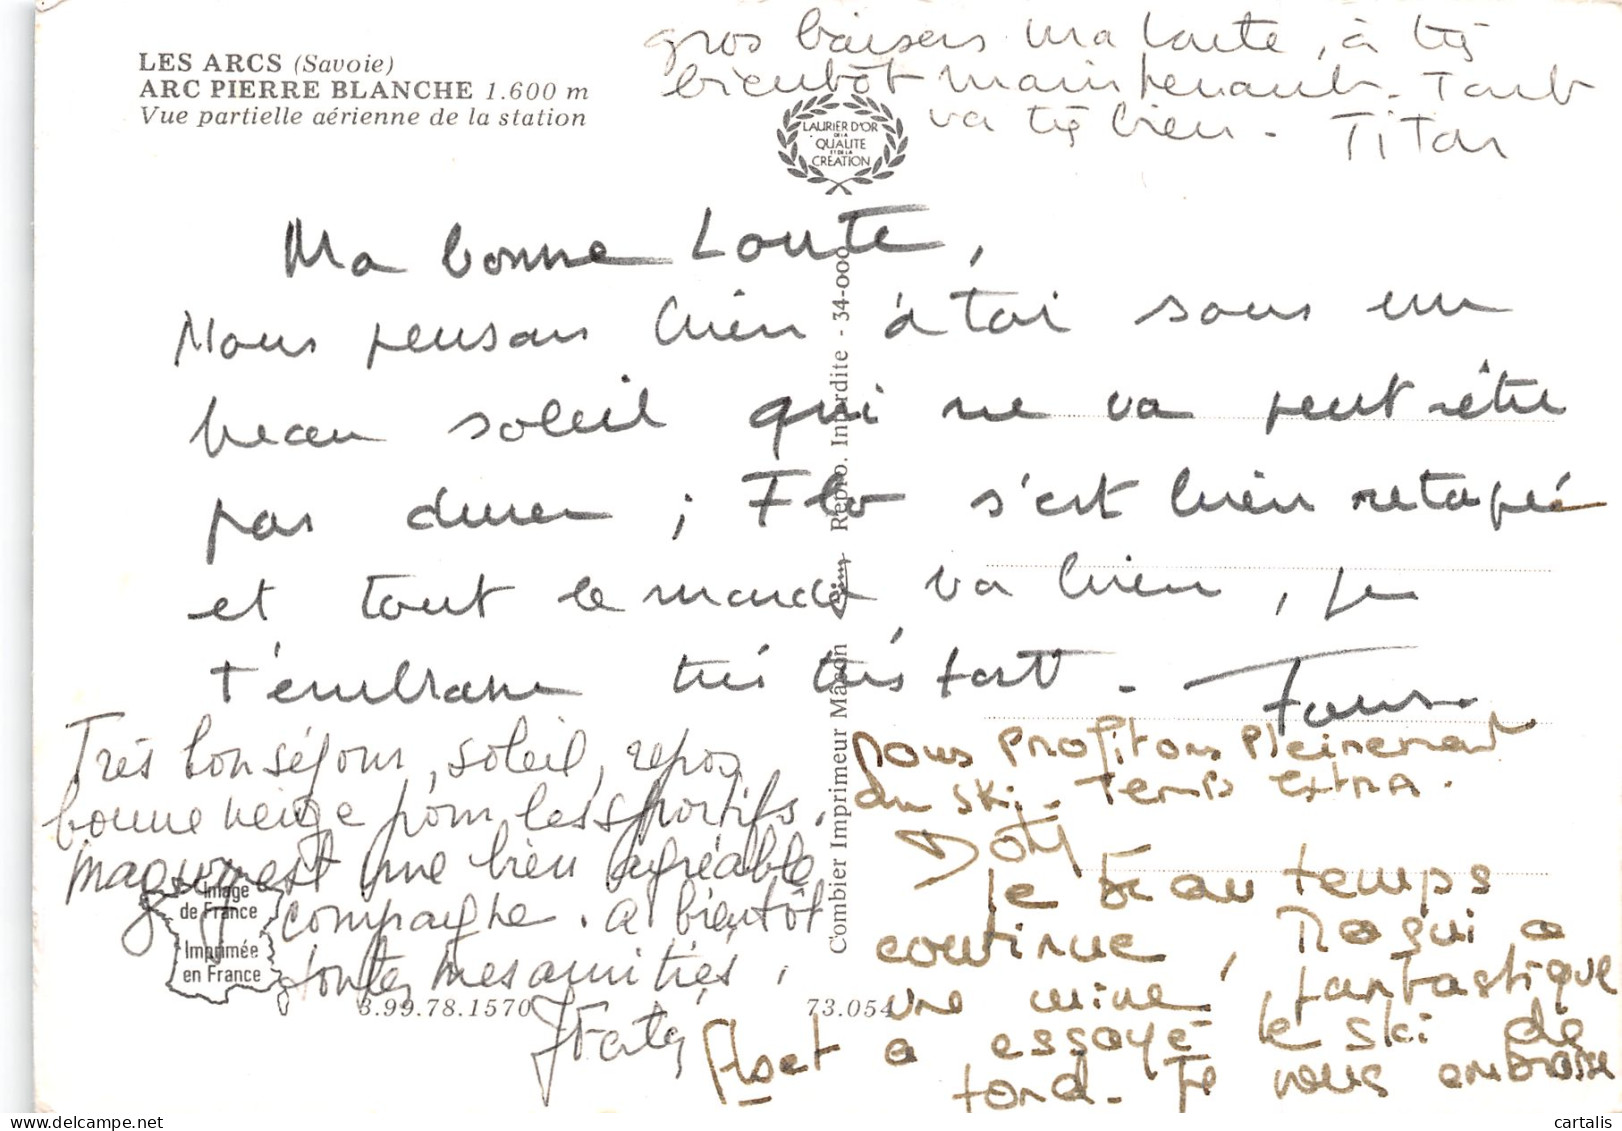 LES ARCS (Savoie)
ARC PIERRE BLANCHE 1.600 m
Vue partielle aérienne de la station
gros baisers ma Loute, à très
bientôt maintenant. Tout
va très bien. Titou
LAURIER D'OR
DE LA
QUALITE
ET DE LA
CREATION
Ma bonne Loute,
Nous pensons bien à toi sous un
beau soleil qui ne va peut être
pas durer ; Flo s'est bien retapée
et tout le monde va bien, je
t'embrasse très très fort.
Combier Imprimeur Mâcon Repro. Interdite - 34-000
Très bon séjour, soleil, repos,
bonne neige pour les sportifs.
une bien agréable
compagnie. à bientôt
toutes mes amitiés,
nous profitons pleinement
du ski. Temps extra.
le beau temps
continue, a
une mine fantastique
a essayé le ski de
fond. Je vous embrasse
Image
de France
Imprimée
en France
3.99.78.1570
73.054